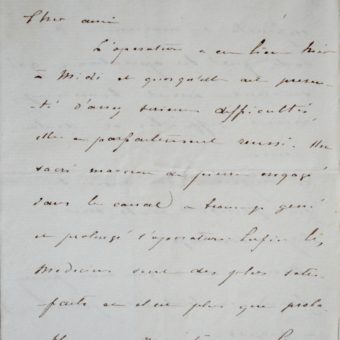 Cher ami
L'operation a eu lieu hier
à Midi et quoiqu'elle ait presen-
té d'assez serieuses difficultés,
elle a parfaitement reussi. Un
sacré morceau de pierre engagé
dans le canal a beaucoup gené
et prolongé l'operation. Enfin les
Medecins sont des plus satis-
faits et il est plus que proba-